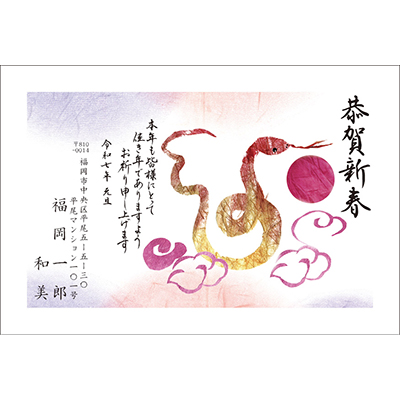 恭賀新春
本年も皆様にとって
佳き年でありますよう
お祈り申し上げます
令和七年 元旦
〒810-0014
福岡市中央区平尾五-五-三〇
平尾マンション一〇一号
福岡一郎
和美